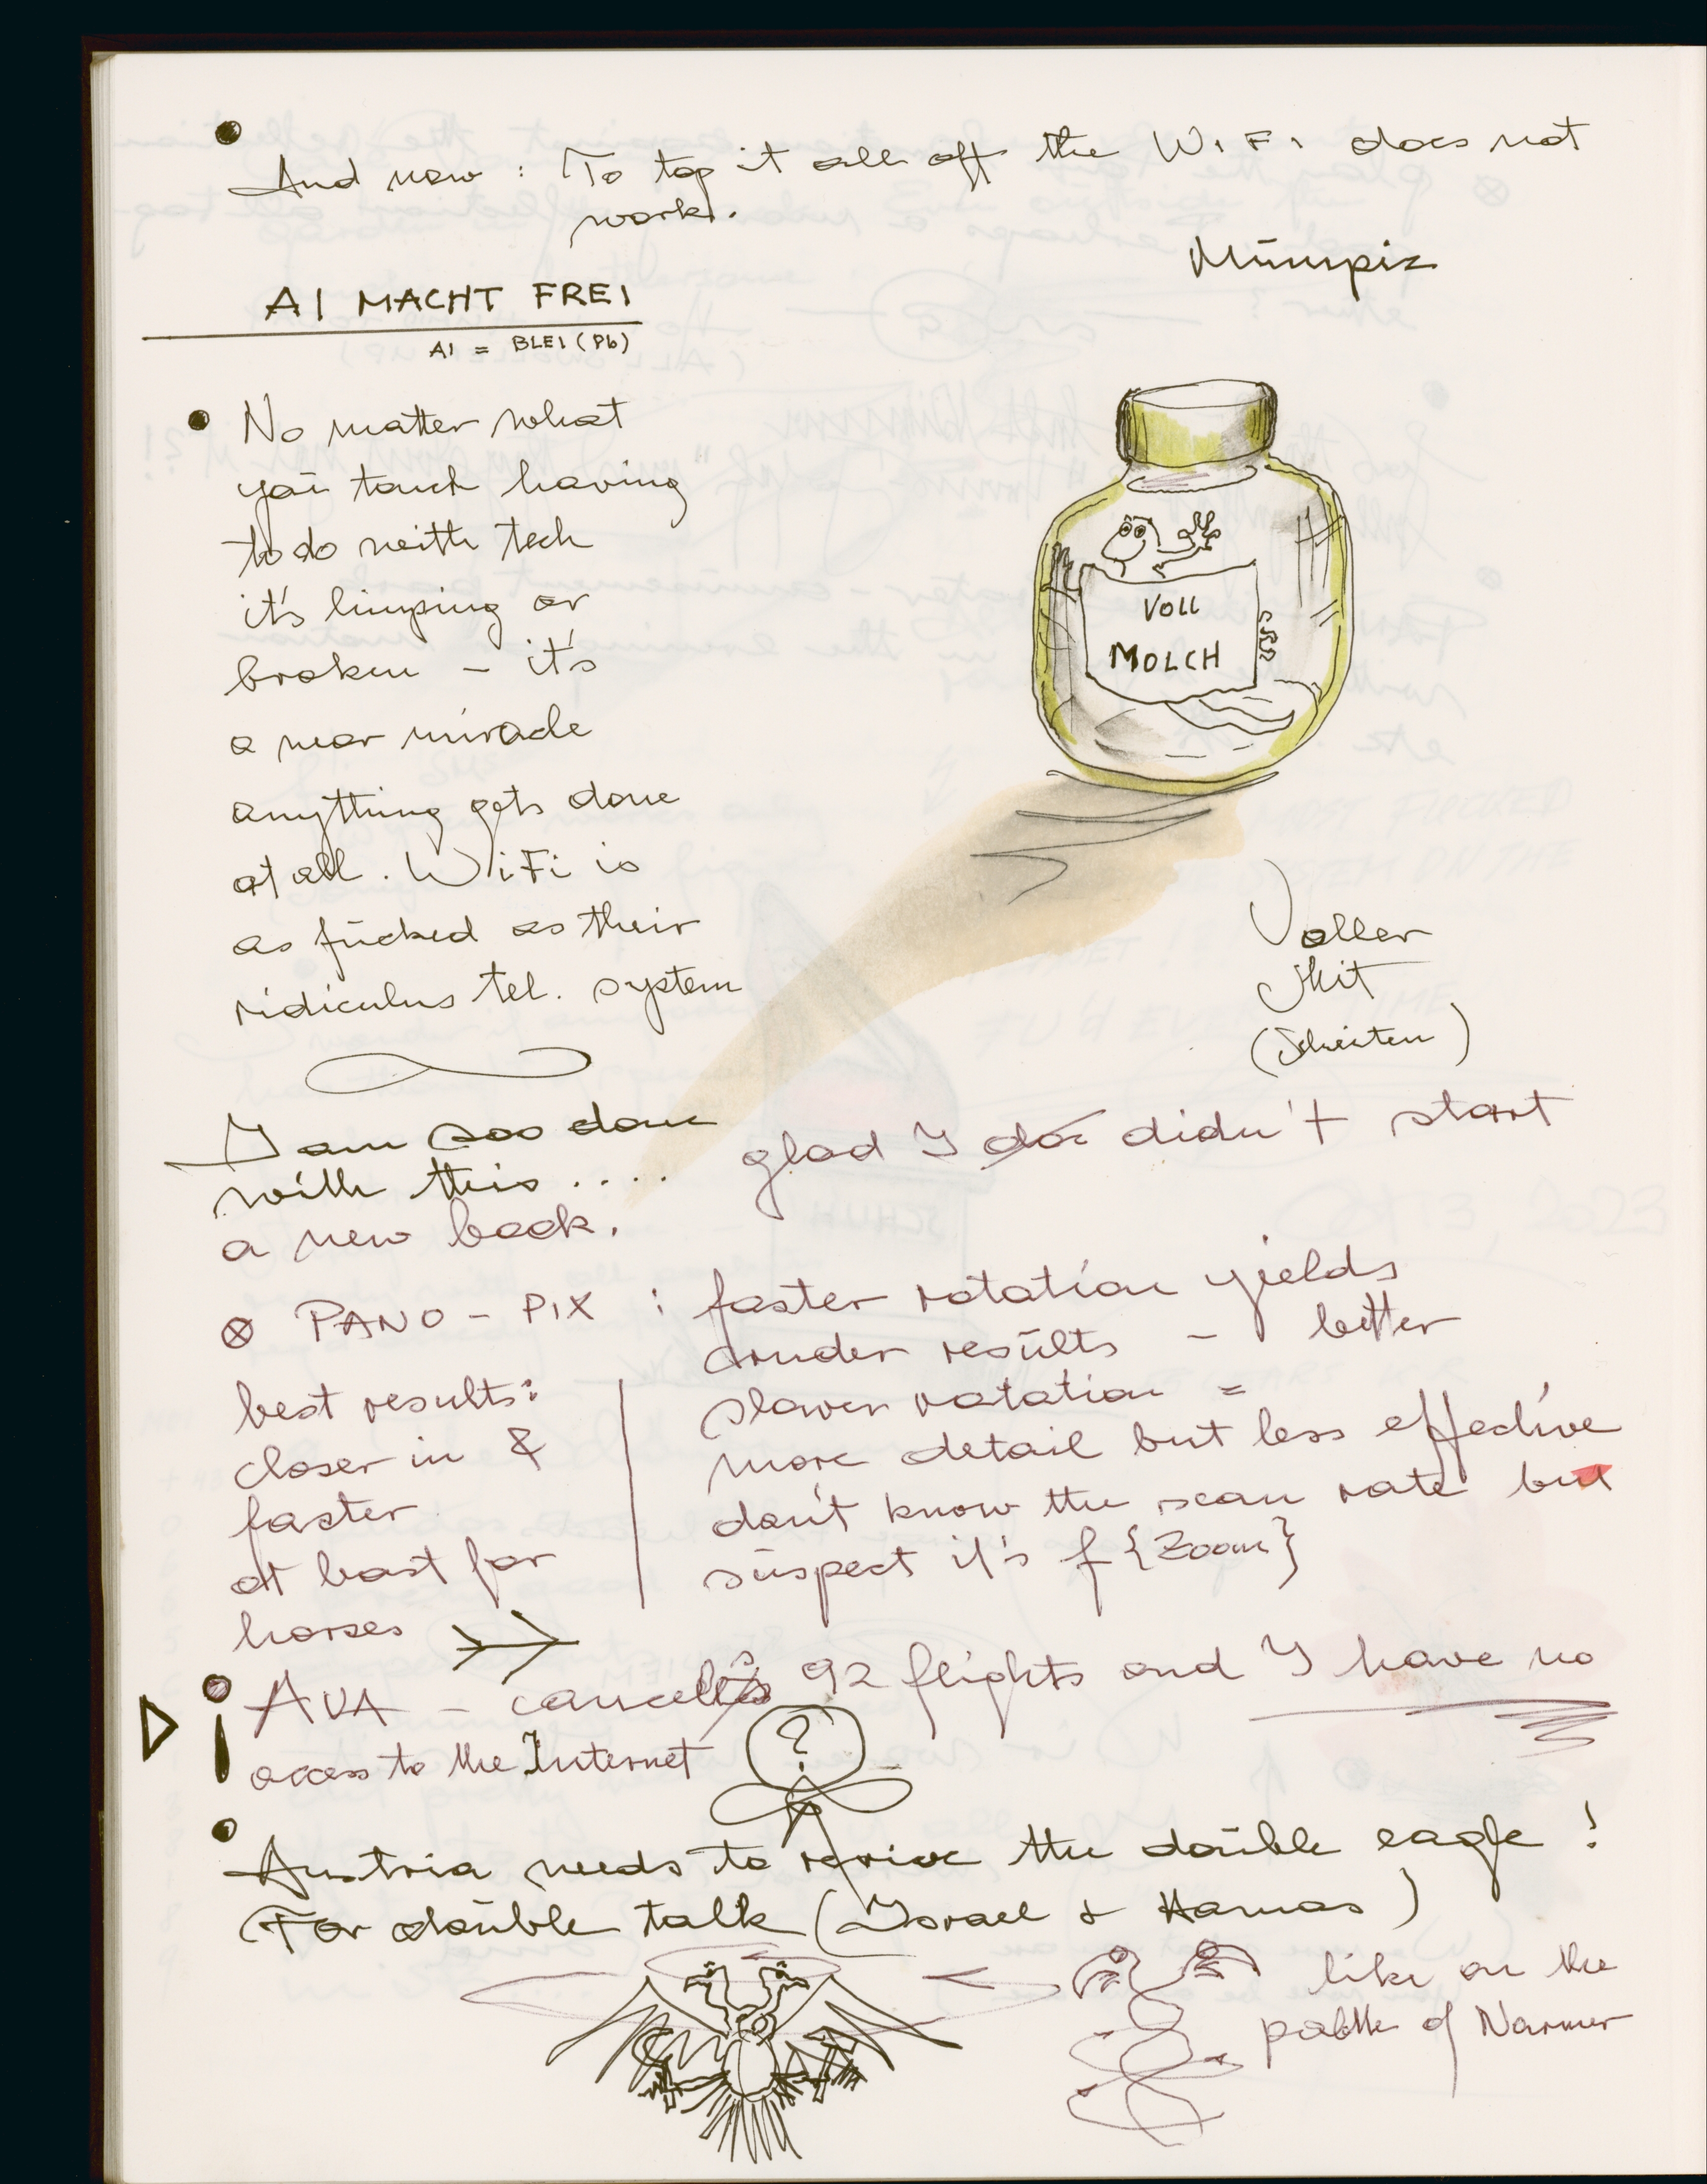 And now : To top it all off the WiFi does not
work.
Mümpiz
AI MACHT FREI
AI = BLEI (Pb)
No matter what
you touch having
to do with tech
it's limping or
broken – it's
a near miracle
anything gets done
at all. WiFi is
as fucked as their
ridiculus tel. system
VOLL
MOLCH
Voller
Shit
I am sooo done
with this .... glad I didn't start
a new book.
⊗ PANO - PIX : faster rotation yields
cruder results – better
best results:
closer in &
faster
at least for
horses
slower rotation =
more detail but less effective
don't know the scan rate but
suspect it's f {Zoom}
AUA – cancells 92 flights and I have no
access to the Internet
?
Austria needs to revive the double eagle !
For double talk (Israel & Hamas)
like on the
palette of Narmer